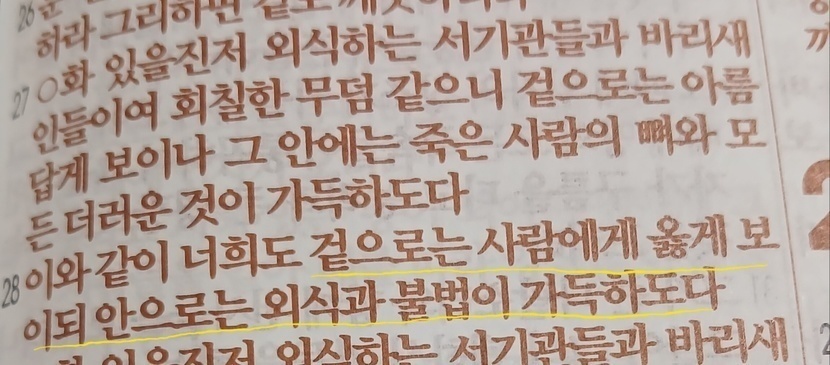 26
하라 그리하면 겉도 깨끗하리라
27 ○화 있을진저 외식하는 서기관들과 바리새
인들이여 회칠한 무덤 같으니 겉으로는 아름
답게 보이나 그 안에는 죽은 사람의 뼈와 모
든 더러운 것이 가득하도다
28 이와 같이 너희도 겉으로는 사람에게 옳게 보
이되 안으로는 외식과 불법이 가득하도다
있을진저 외식하는 서기관들과 바리새